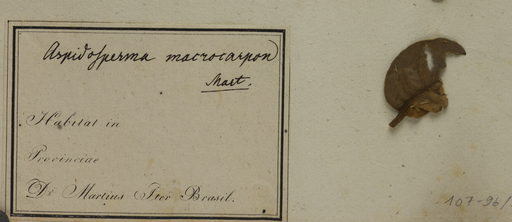 Aspidosperma macrocarpon
Mart.
Habitat in
Provinciae
Dr Martius Iter Brasil.
107-96/